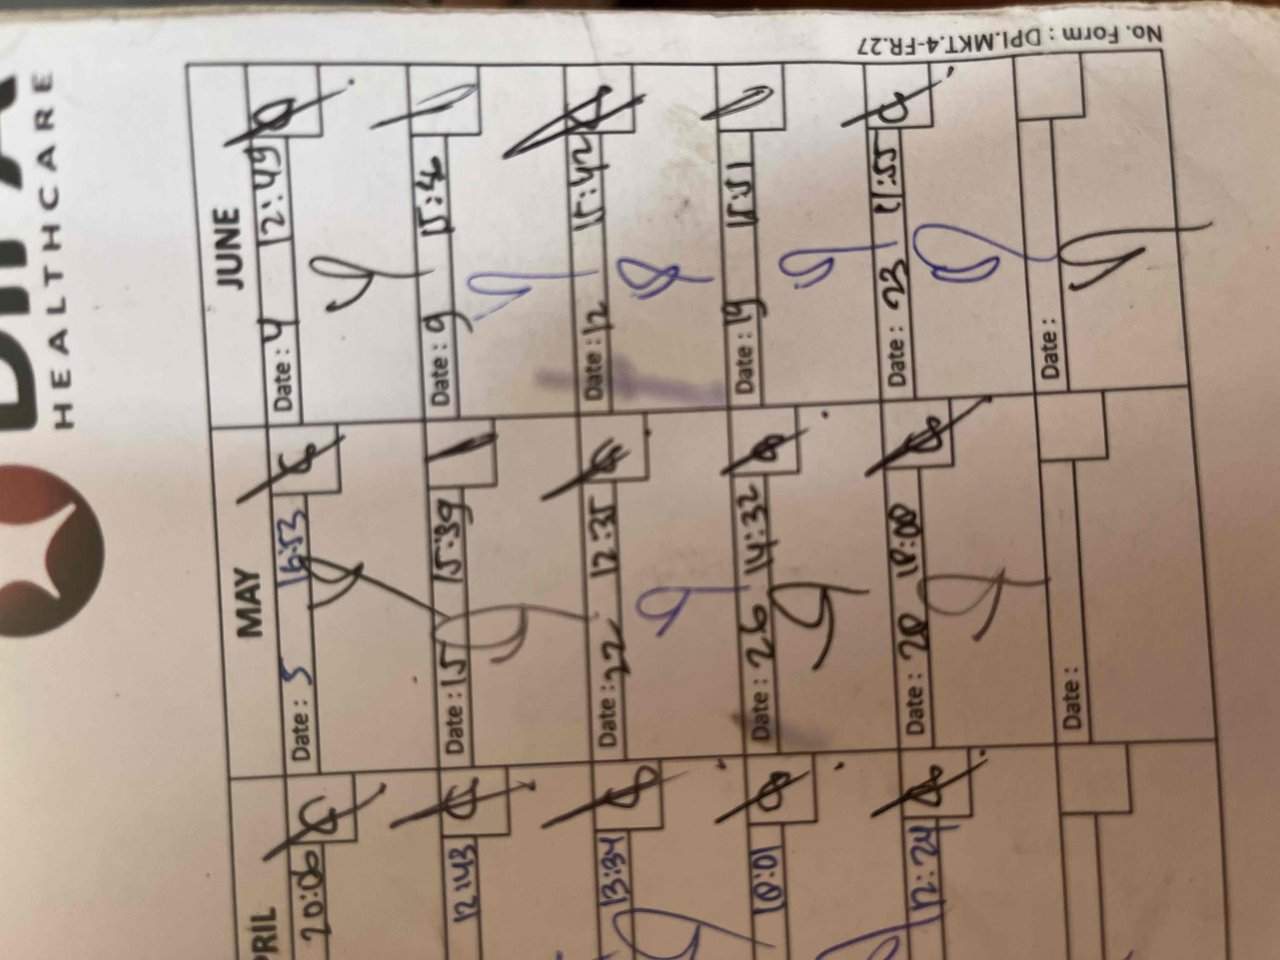 HEALTHCARE
No. Form : DPI.MKT.4-FR.27
PRIL
20:06
12:43
13:34
10:01
12:24
MAY
Date : 5 16:53
Date : 15 15:39
Date : 22 12:35
Date : 26 14:32
Date : 28 18:00
Date :
JUNE
Date : 4 12:49
Date : 9
Date : 12 15:42
Date : 19 15:51
Date : 23
Date :